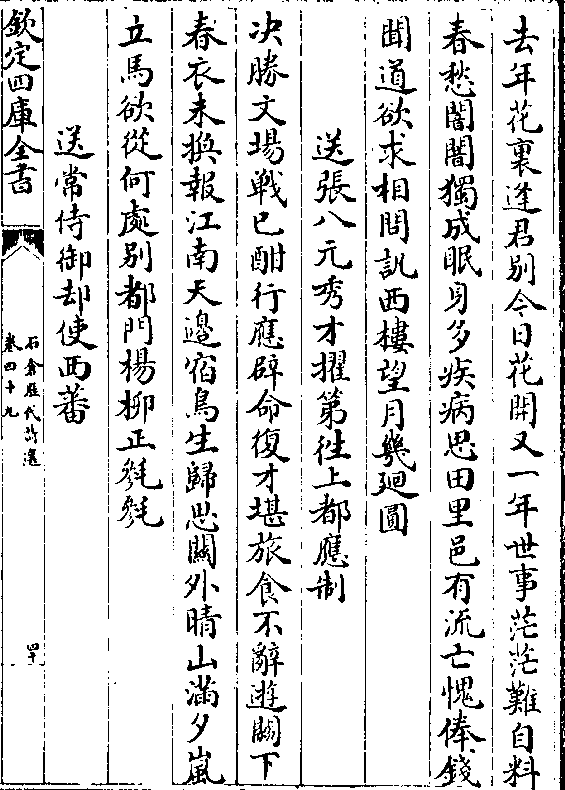 去年花裏逢君別今日花開又一年世事茫茫難自料
春愁闇闇獨成眠身多疾病思田里邑有流亡愧俸錢
聞道欲求相問訊西樓望月幾廻圓
送張八元秀才擢第徃上都應制
决勝文場戰已酣行應辟命復才堪旅食不辭遊闕下
春衣未換報江南天邊宿鳥生歸思關外晴山滿夕嵐
立馬欲從何處別都門楊柳正毿毿
送常侍御却使西蕃
欽定四庫全書
石倉歷代詩選
卷四十九